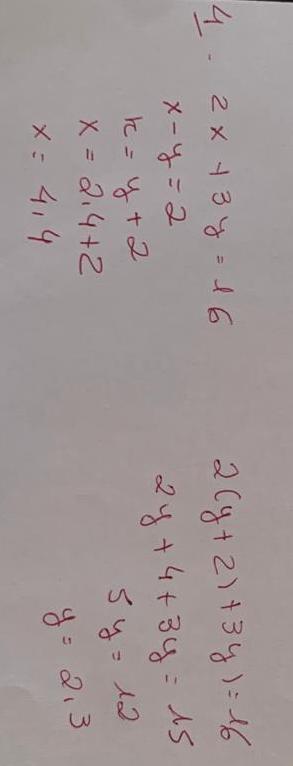 4. 2x + 3y = 16
x - y = 2
x = y + 2
x = 2,4 + 2
x = 4,4
2(y + 2) + 3y) = 16
2y + 4 + 3y = 15
5y = 12
y = 2,3